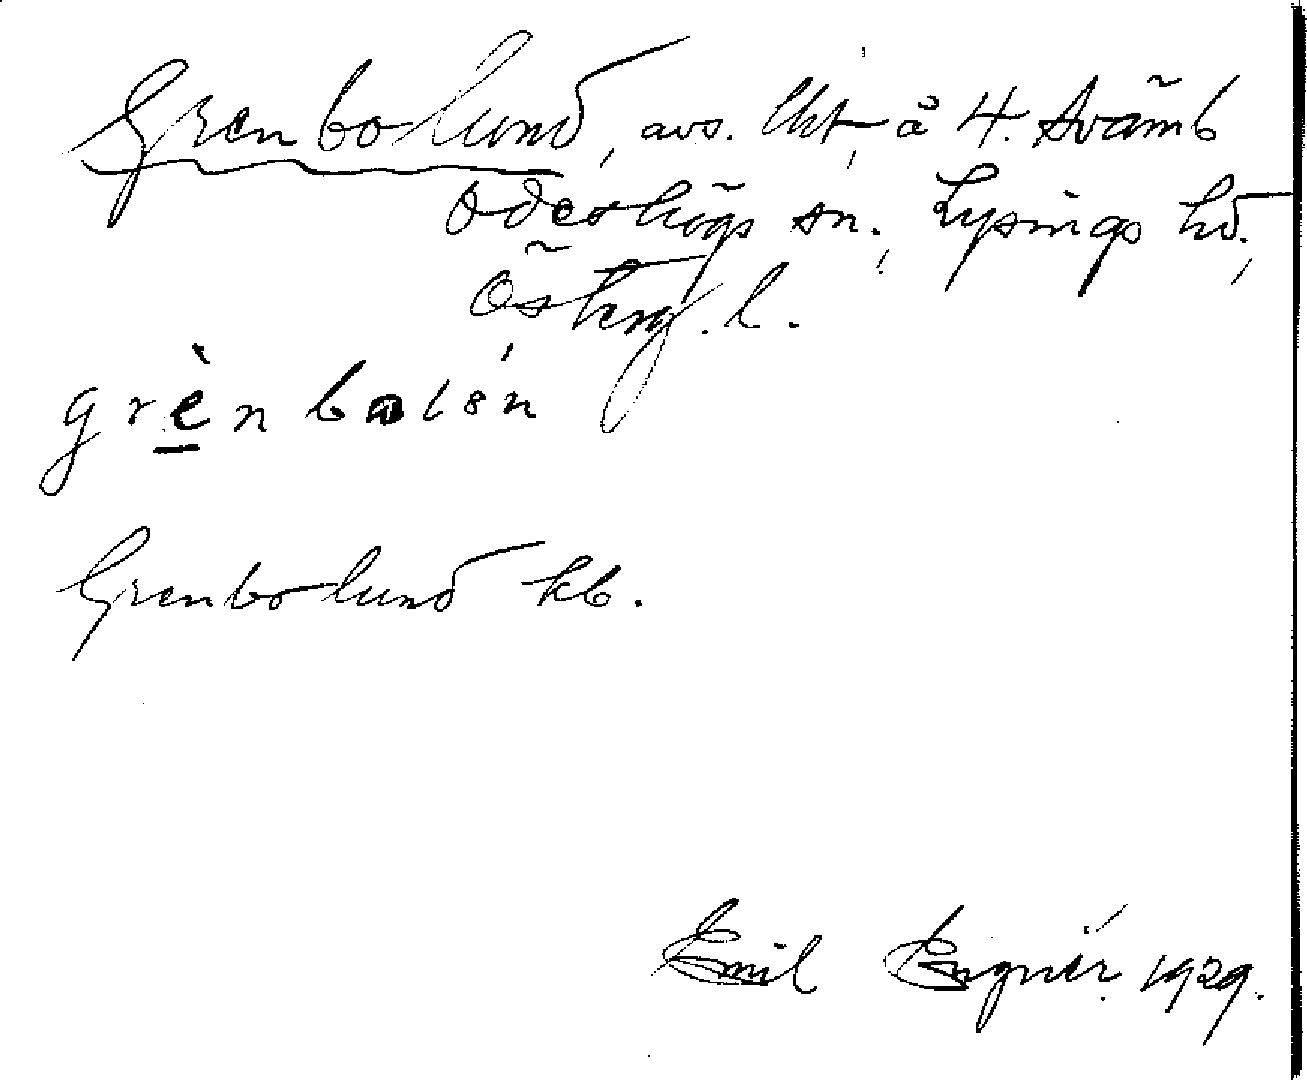 Grenbolund, avs. lht, å 4. Svämb
Ödeshögs sn., Lysings hd.,
Österg. l.
grènbolón
Grenbolund kb.
Emil Engnér 1929.